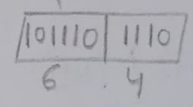 101110 1110
6 4